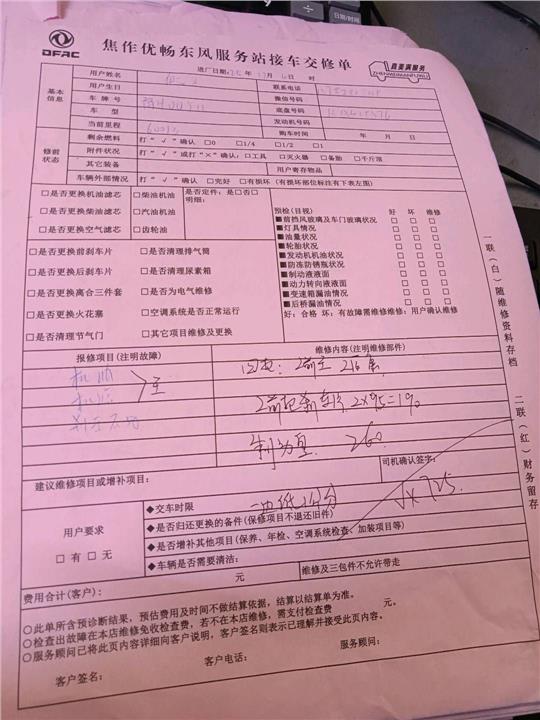 日期/时间
DFAC
焦作优畅东风服务站接车交修单
喜麦满服务
ZHENWEIMANFUWU
进厂日期: 年 月 日 时
基本信息
用户姓名
联系电话
用户生日
微信号码
车牌号
底盘号码
车型
发动机号码
当前里程
购车时间 年 月 日
修前状态
剩余燃料 打“√”确认 □0 □1/4 □1/2 □1
附件状况 打“√”或打“×”确认:□工具 □灭火器 □备胎 □千斤顶
其它装备
用户寄存物品
车辆外部情况 打“√”确认 □完好 □有损坏(有损坏部位标注有下表左图)
□是否更换机油滤芯 □柴油机油 是否定件:是□否□
明细:
□是否更换柴油滤芯 □汽油机油
□是否更换空气滤芯 □齿轮油
□是否更换前刹车片 □是否清理排气筒
□是否更换后刹车片 □是否清理尿素箱
□是否更换离合三件套 □是否为电气维修
□是否更换火花塞 □空调系统是否正常运行
□是否清理节气门 □其它项目维修及更换
预检(目视) 好 坏 维修
■前挡风玻璃及车门玻璃状况 □ □ □
■灯具情况 □ □ □
■油量状况 □ □ □
■轮胎状况 □ □ □
■发动机机油状况 □ □ □
■防冻防锈瓶状况 □ □ □
■制动液液面 □ □ □
■动力转向液液面 □ □ □
■变速箱漏油情况 □ □ □
■后桥漏油情况 □ □ □
好:合格 坏:有故障需维修维修:用户确认维修
报修项目(注明故障)
维修内容(注明维修部件)
2×95=190
260
建议维修项目或增补项目:
司机确认签字:
用户要求
□有 □无
◆交车时限
◆是否归还更换的备件(保修项目不退还旧件)
◆是否增补其他项目(保养、年检、空调系统检查、加装项目等)
◆车辆是否需要清洁:
费用合计(客户): 元
维修及三包件不允许带走
○此单所含预诊断结果,预估费用及时间不做结算依据,结算以结算单为准。
○检查出故障在本店维修免收检查费,若不在本店维修,需支付检查费 元。
○服务顾问已将此页内容详细向客户说明,客户签名则表示已理解并接受此页内容。
客户签名: 客户电话: 服务顾问:
一联(白)随维修资料存档
二联(红)财务留存